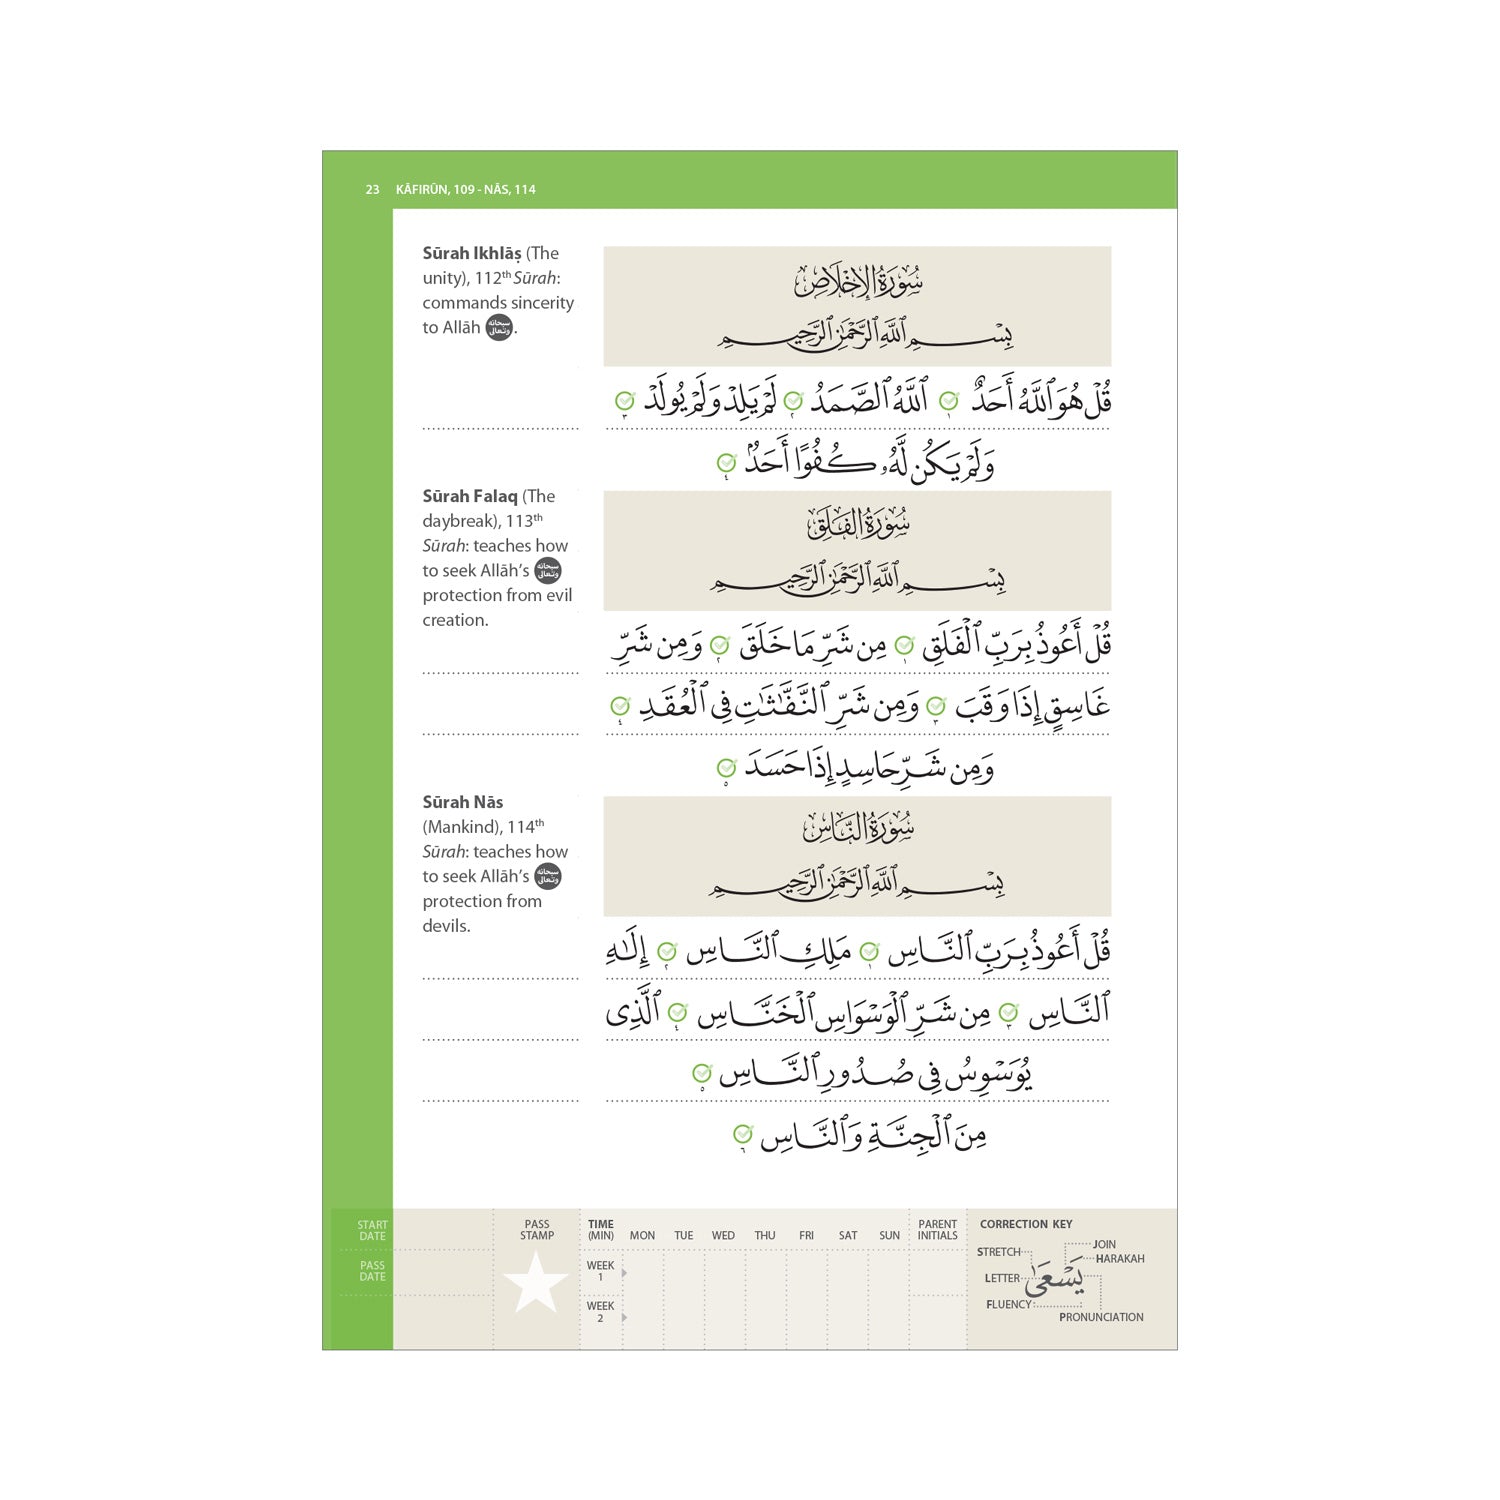 23 KĀFIRŪN, 109 - NĀS, 114
Sūrah Ikhlāṣ (The
unity), 112th Sūrah:
commands sincerity
to Allāh سبحانه وتعالى.
سُورَةُ الإِخْلَاصِ
بِسْمِ ٱللَّهِ ٱلرَّحْمَٰنِ ٱلرَّحِيمِ
قُلْ هُوَ ٱللَّهُ أَحَدٌ ١ ٱللَّهُ ٱلصَّمَدُ ٢ لَمْ يَلِدْ وَلَمْ يُولَدْ ٣
وَلَمْ يَكُن لَّهُۥ كُفُوًا أَحَدٌۢ ٤
Sūrah Falaq (The
daybreak), 113th
Sūrah: teaches how
to seek Allāh's سبحانه وتعالى
protection from evil
creation.
سُورَةُ الْفَلَقِ
بِسْمِ ٱللَّهِ ٱلرَّحْمَٰنِ ٱلرَّحِيمِ
قُلْ أَعُوذُ بِرَبِّ ٱلْفَلَقِ ١ مِن شَرِّ مَا خَلَقَ ٢ وَمِن شَرِّ
غَاسِقٍ إِذَا وَقَبَ ٣ وَمِن شَرِّ ٱلنَّفَّٰثَٰتِ فِى ٱلْعُقَدِ ٤
وَمِن شَرِّ حَاسِدٍ إِذَا حَسَدَ ٥
Sūrah Nās
(Mankind), 114th
Sūrah: teaches how
to seek Allāh's سبحانه وتعالى
protection from
devils.
سُورَةُ النَّاسِ
بِسْمِ ٱللَّهِ ٱلرَّحْمَٰنِ ٱلرَّحِيمِ
قُلْ أَعُوذُ بِرَبِّ ٱلنَّاسِ ١ مَلِكِ ٱلنَّاسِ ٢ إِلَٰهِ
ٱلنَّاسِ ٣ مِن شَرِّ ٱلْوَسْوَاسِ ٱلْخَنَّاسِ ٤ ٱلَّذِى
يُوَسْوِسُ فِى صُدُورِ ٱلنَّاسِ ٥
مِنَ ٱلْجِنَّةِ وَٱلنَّاسِ ٦
START
DATE
PASS
DATE
PASS
STAMP
TIME
(MIN) MON TUE WED THU FRI SAT SUN
WEEK
1
WEEK
2
PARENT
INITIALS
CORRECTION KEY
STRETCH
JOIN
HARAKAH
LETTER
يَسْعَىٰ
FLUENCY
PRONUNCIATION